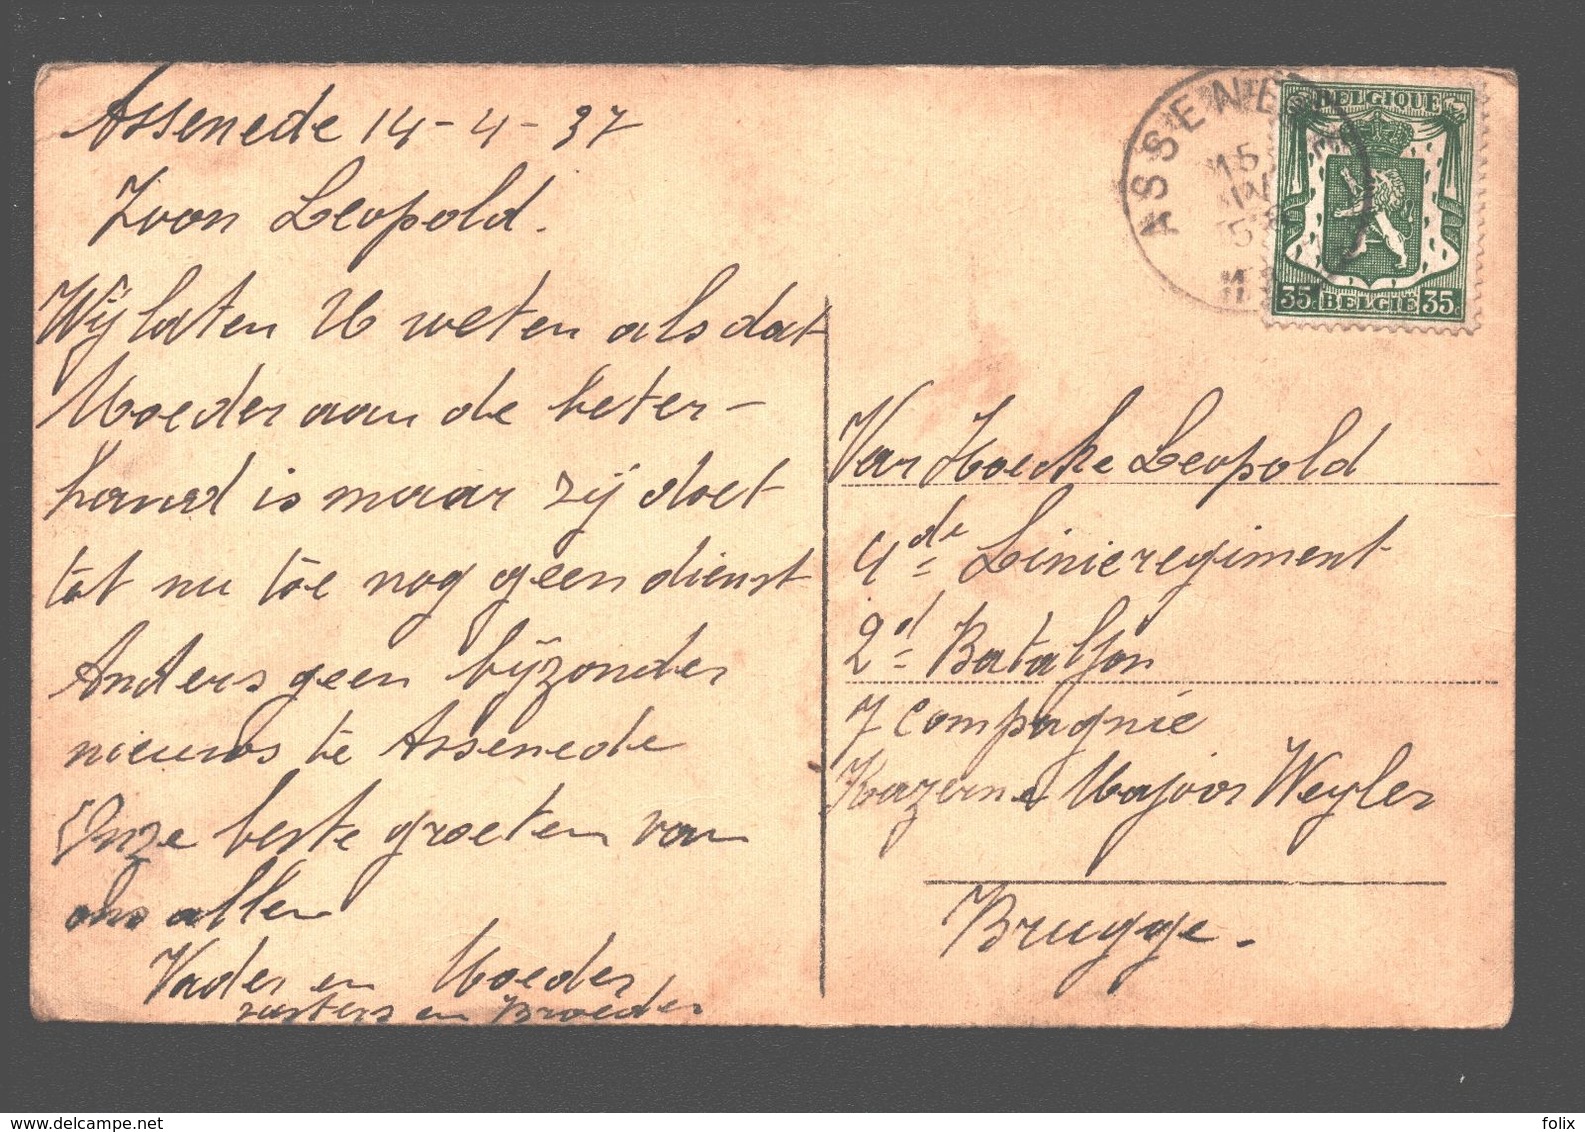 Assenede 14-4-37
Zoon Leopold.
Wij laten U weten als dat
Moeder aan de beter-
hand is maar zij doet
tot nu toe nog geen dienst
Anders geen bijzonder
nieuws te Assenede
Onze beste groeten van
ons allen
Vader en Moeder
zusters en Broeder
ASSENEDE
15
BELGIQUE
35 BELGIE 35
Van Hoecke Leopold
4de Linieregiment
2d Bataljon
7 Compagnie
Kazerne Majoor Weyler
Brugge.
www.delcampe.net
felix